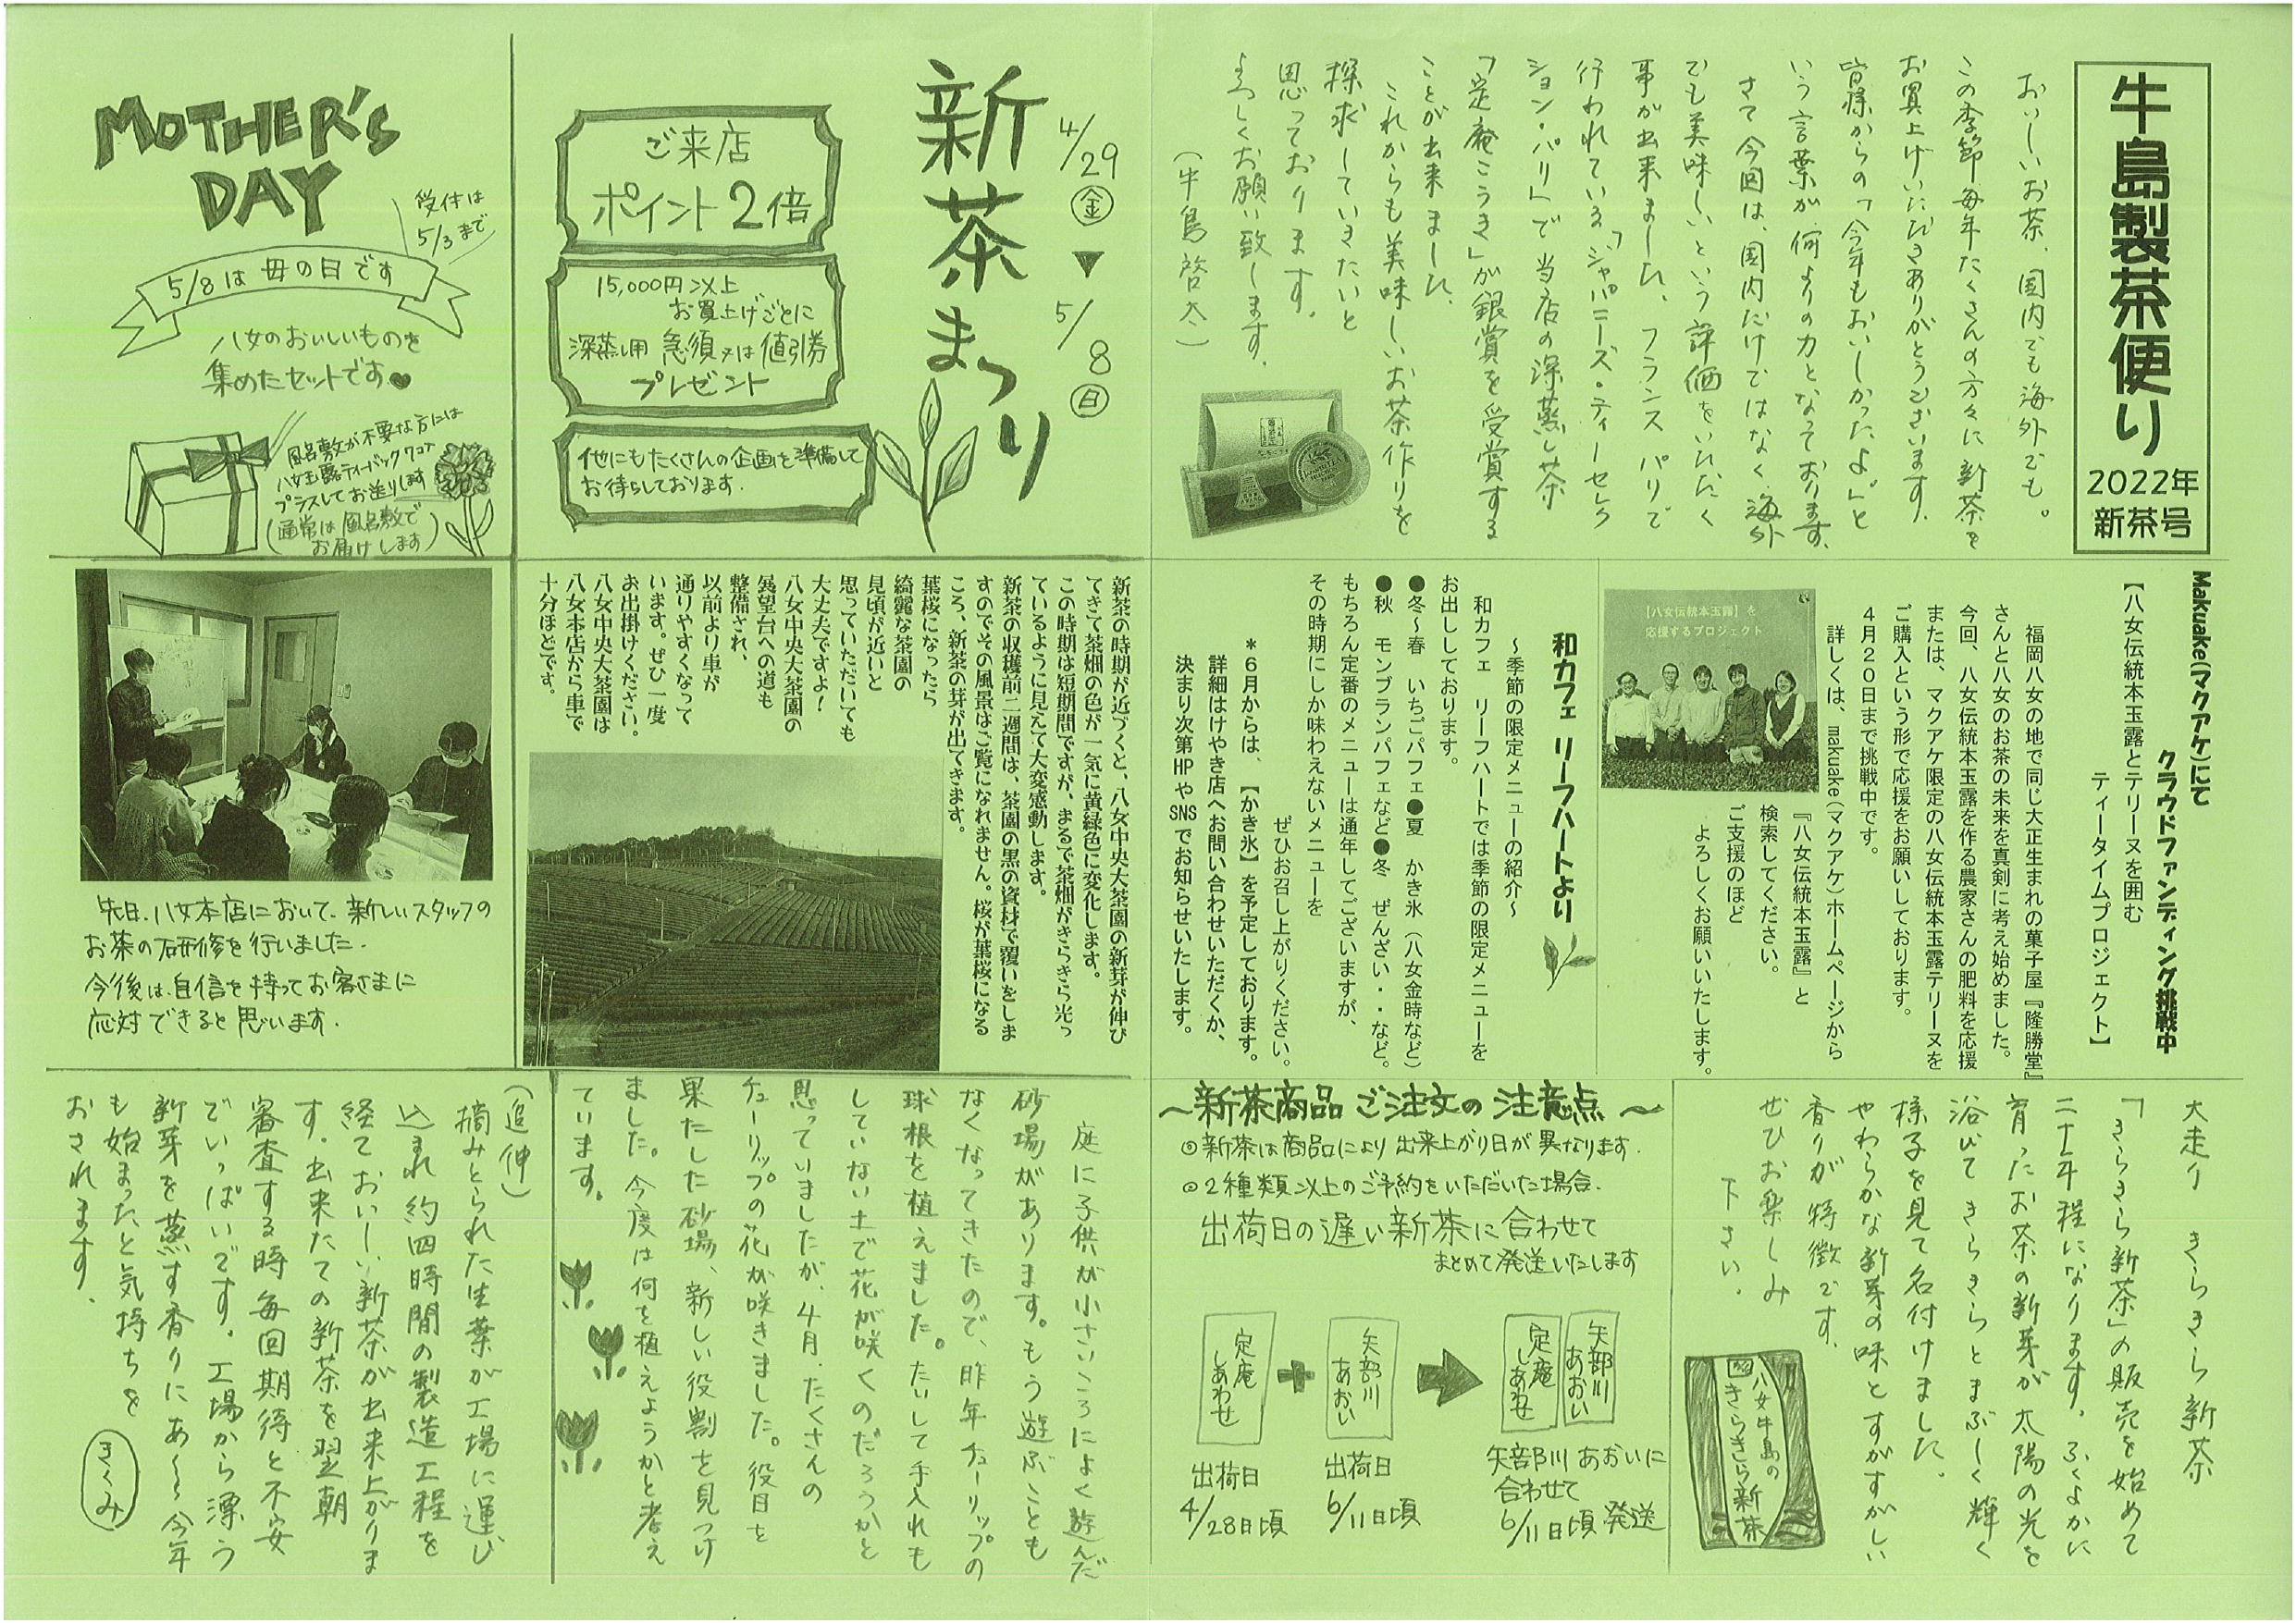 牛島製茶便り
2022年
新茶号
おいしいお茶、国内でも海外でも。
この季節毎年たくさんの方々に新茶を
お買上げいただきありがとうございます。
皆様からの「今年もおいしかったよ」と
いう言葉が何よりの力となっております。
さて今回は、国内だけではなく海外
でも美味しいという評価をいただく
事が出来ました。フランス パリで
行われている「ジャパニーズ・ティーセレク
ション・パリ」で当店の深蒸し茶
「定庵こうき」が銀賞を受賞する
ことが出来ました。
これからも美味しいお茶作りを
探求していきたいと
思っております。
よろしくお願い致します。
(牛島啓太)
4/29㊎▼5/8㊐
新茶まつり
ご来店
ポイント2倍
15,000円以上
お買上げごとに
深蒸し用 急須 又は 値引券
プレゼント
他にもたくさんの企画を準備して
お待ちしております。
MOTHER'S
DAY
受付は
5/3まで
5/8は 母の日です
八女のおいしいものを
集めたセットです♥
風呂敷が不要な方には
八女玉露ティーバック7コ
プラスしてお送りします
(通常は風呂敷で
お届けします)
Makuake(マクアケ)にて
クラウドファンディング挑戦中
【八女伝統本玉露とテリーヌを囲む
ティータイムプロジェクト】
福岡八女の地で同じ大正生まれの菓子屋『隆勝堂』
さんと八女のお茶の未来を真剣に考え始めました。
今回、八女伝統本玉露を作る農家さんの肥料を応援
または、マクアケ限定の八女伝統本玉露テリーヌを
ご購入という形で応援をお願いしております。
4月20日まで挑戦中です。
詳しくは、makuake(マクアケ)ホームページから
『八女伝統本玉露』と
検索してください。
ご支援のほど
よろしくお願いいたします。
【八女伝統本玉露】を
応援するプロジェクト
和カフェ リーフハートより
～季節の限定メニューの紹介～
和カフェ リーフハートでは季節の限定メニューを
お出ししております。
●冬～春 いちごパフェ●夏 かき氷(八女金時など)
●秋 モンブランパフェなど●冬 ぜんざい・・など。
もちろん定番のメニューは通年してございますが、
その時期にしか味わえないメニューを
ぜひお召し上がりください。
*6月からは、【かき氷】を予定しております。
詳細はけやき店へお問い合わせいただくか、
決まり次第HPやSNSでお知らせいたします。
新茶の時期が近づくと、八女中央大茶園の新芽が伸び
てきて茶畑の色が一気に黄緑色に変化します。
この時期は短期間ですが、まるで茶畑がきらきら光っ
ているように見えて大変感動します。
新茶の収穫前二週間は、茶園の黒の資材で覆いをしま
すのでその風景はご覧になれません。桜が葉桜になる
ころ、新茶の芽が出てきます。
葉桜になったら
綺麗な茶園の
見頃が近いと
思っていただいても
大丈夫ですよ！
八女中央大茶園の
展望台への道も
整備され、
以前より車が
通りやすくなって
います。ぜひ一度
お出掛けください。
八女中央大茶園は
八女本店から車で
十分ほどです。
先日、八女本店において、新しいスタッフの
お茶の研修を行いました。
今後は、自信を持ってお客さまに
応対できると思います。
大走り きらきら新茶
「きらきら新茶」の販売を始めて
二十年程になります。ふくよかに
育ったお茶の新芽が太陽の光を
浴びてきらきらとまぶしく輝く
様子を見て名付けました。
やわらかな新芽の味とすがすがしい
香りが特徴です。
ぜひお楽しみ
下さい。
八女牛島の
きらきら新茶
～新茶商品 ご注文の 注意点～
◎新茶は商品により 出来上がり日が 異なります.
◎2種類以上のご予約をいただいた場合.
出荷日の遅い新茶に合わせて
まとめて発送いたします
定庵
しあわせ
+
矢部川
あおい
定庵
しあわせ
矢部川
あおい
出荷日
4/28日頃
出荷日
6/11日頃
矢部川 あおいに
合わせて
6/11日頃 発送
庭に子供が小さいころによく遊んだ
砂場があります。もう遊ぶことも
なくなってきたので、昨年チューリップの
球根を植えました。たいして手入れも
していない土で花が咲くのだろうかと
思っていましたが、4月、たくさんの
チューリップの花が咲きました。役目を
果たした砂場、新しい役割を見つけ
ました。今度は何を植えようかと考え
ています。
(追伸)
摘みとられた生葉が工場に運び
込まれ約四時間の製造工程を
経ておいしい新茶が出来上がりま
す。出来たての新茶を翌朝
審査する時毎回期待と不安
でいっぱいです。工場から漂う
新芽を蒸す香りにあ～今年
も始まったと気持ちを
おされます。
きくみ